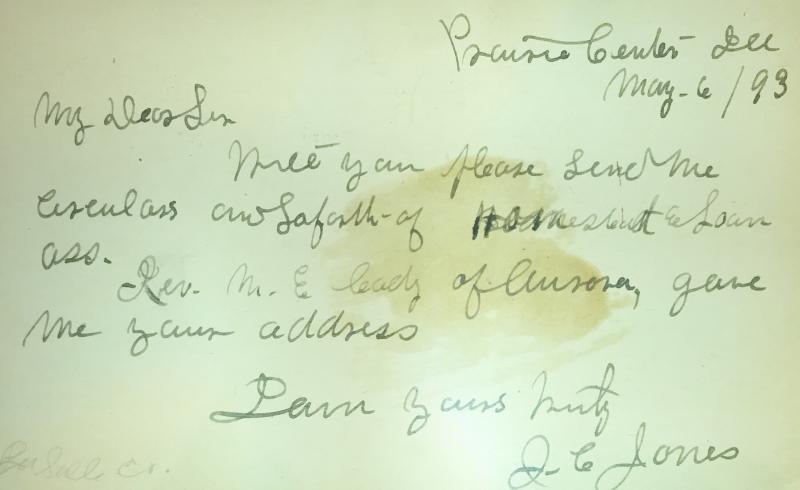 Prairie Center Ill
May-6/93
My Dear Sir
Will you please send me
Circulars and so forth-of Homestead & Loan
ass.
Rev. M. E. Cady of Aurora, gave
me your address
I am yours truly
J. C Jones
LaSalle Co.